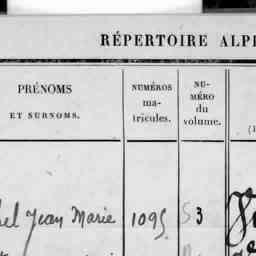 RÉPERTOIRE ALP
PRÉNOMS
ET SURNOMS.
NUMÉROS
ma-
tricules.
NU-
MÉRO
du
volume.
el Jean Marie 1095 3